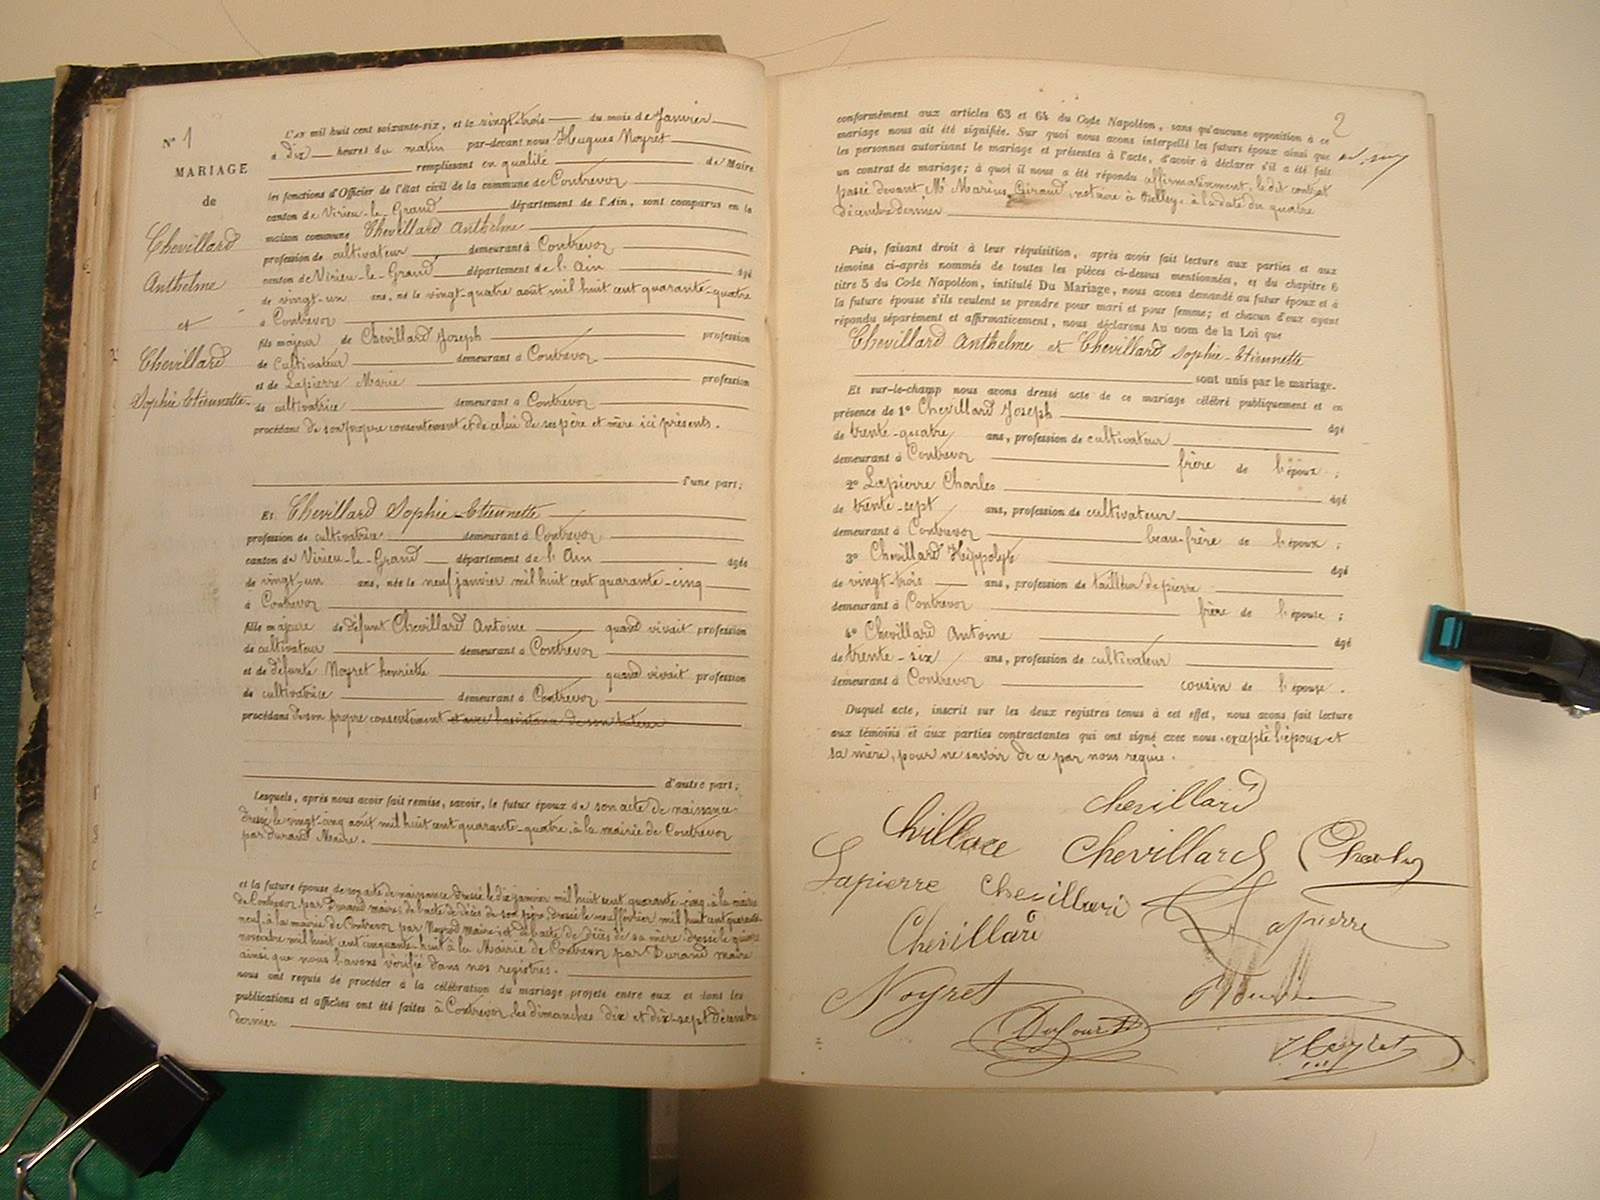 N° 1
MARIAGE
de
Chevillard
Anthelme
et
Chevillard
Sophie Etiennette
L'an mil huit cent soixante-six, et le vingt-trois du mois de Janvier
à dix heures du matin par-devant nous Hugues Noyret
remplissant en qualité de Maire
les fonctions d'Officier de l'état civil de la commune de Contrevoz
canton de Virieu-le-Grand département de l'Ain, sont comparus en la
maison commune Chevillard Anthelme
profession de cultivateur demeurant à Contrevoz
canton de Virieu-le-Grand département de l'Ain âgé
de vingt-un ans, né le vingt-quatre août mil huit cent quarante-quatre
à Contrevoz
fils majeur de Chevillard Joseph profession
de Cultivateur demeurant à Contrevoz
et de Lapierre Marie profession
de cultivatrice demeurant à Contrevoz
procédant de son propre consentement et de celui de ses père et mère ici présents.
d'une part;
Et Chevillard Sophie-Etiennette
profession de cultivatrice demeurant à Contrevoz
canton de Virieu-le-Grand département de l'Ain âgée
de vingt-un ans, née le neuf janvier mil huit cent quarante-cinq
à Contrevoz
fille majeure de défunt Chevillard Antoine quand vivait profession
de cultivateur demeurant à Contrevoz
et de défunte Noyret henriette quand vivait profession
de cultivatrice demeurant à Contrevoz
procédant de son propre consentement et avec l'assistance de son tuteur
d'autre part;
Lesquels, après nous avoir fait remise, savoir, le futur époux de son acte de naissance
dressé le vingt-cinq août mil huit cent quarante-quatre à la mairie de Contrevoz
par Durand Maire.
et la future épouse de son acte de naissance dressé le dix janvier mil huit cent quarante-cinq à la mairie
de Contrevoz par Durand maire; de l'acte de décès de son père dressé le neuf février mil huit cent quarante-
neuf à la mairie de Contrevoz par Noyret Maire et de l'acte de décès de sa mère dressé le quinze
novembre mil huit cent cinquante-huit à la Mairie de Contrevoz par Durand maire
ainsi que nous l'avons vérifié dans nos registres.
nous ont requis de procéder à la célébration du mariage projeté entre eux et dont les
publications et affiches ont été faites à Contrevoz les dimanches dix et dix-sept Décembre
dernier
2
conformément aux articles 63 et 64 du Code Napoléon, sans qu'aucune opposition à ce
mariage nous ait été signifiée. Sur quoi nous avons interpellé les futurs époux ainsi que
les personnes autorisant le mariage et présentes à l'acte, d'avoir à déclarer s'il a été fait
un contrat de mariage; à quoi il nous a été répondu affirmativement, le dit contrat
passé devant Me Marius Giraud, notaire à Belley, à la date du quatre
décembre dernier
Puis, faisant droit à leur réquisition, après avoir fait lecture aux parties et aux
témoins ci-après nommés de toutes les pièces ci-dessus mentionnées, et du chapitre 6
titre 5 du Code Napoléon, intitulé Du Mariage, nous avons demandé au futur époux et à
la future épouse s'ils veulent se prendre pour mari et pour femme; et chacun d'eux ayant
répondu séparément et affirmativement, nous déclarons Au nom de la Loi que
Chevillard Anthelme et Chevillard Sophie-Etiennette
sont unis par le mariage.
Et sur-le-champ nous avons dressé acte de ce mariage célébré publiquement et en
présence de 1° Chevillard Joseph âgé
de trente-quatre ans, profession de cultivateur
demeurant à Contrevoz frère de l'époux;
2° Lapierre Charles âgé
de trente-sept ans, profession de cultivateur
demeurant à Contrevoz beau-frère de l'époux;
3° Chevillard Hippolyte âgé
de vingt-trois ans, profession de tailleur de pierre
demeurant à Contrevoz frère de l'épouse;
4° Chevillard Antoine âgé
de trente-six ans, profession de cultivateur
demeurant à Contrevoz cousin de l'épouse.
Duquel acte, inscrit sur les deux registres tenus à cet effet, nous avons fait lecture
aux témoins et aux parties contractantes qui ont signé avec nous, excepté l'époux et
sa mère, pour ne savoir de ce par nous requis.
Chevillard
Chevillard
Lapierre Chevillard Lapierre
Chevillard
Noyret
Noyret